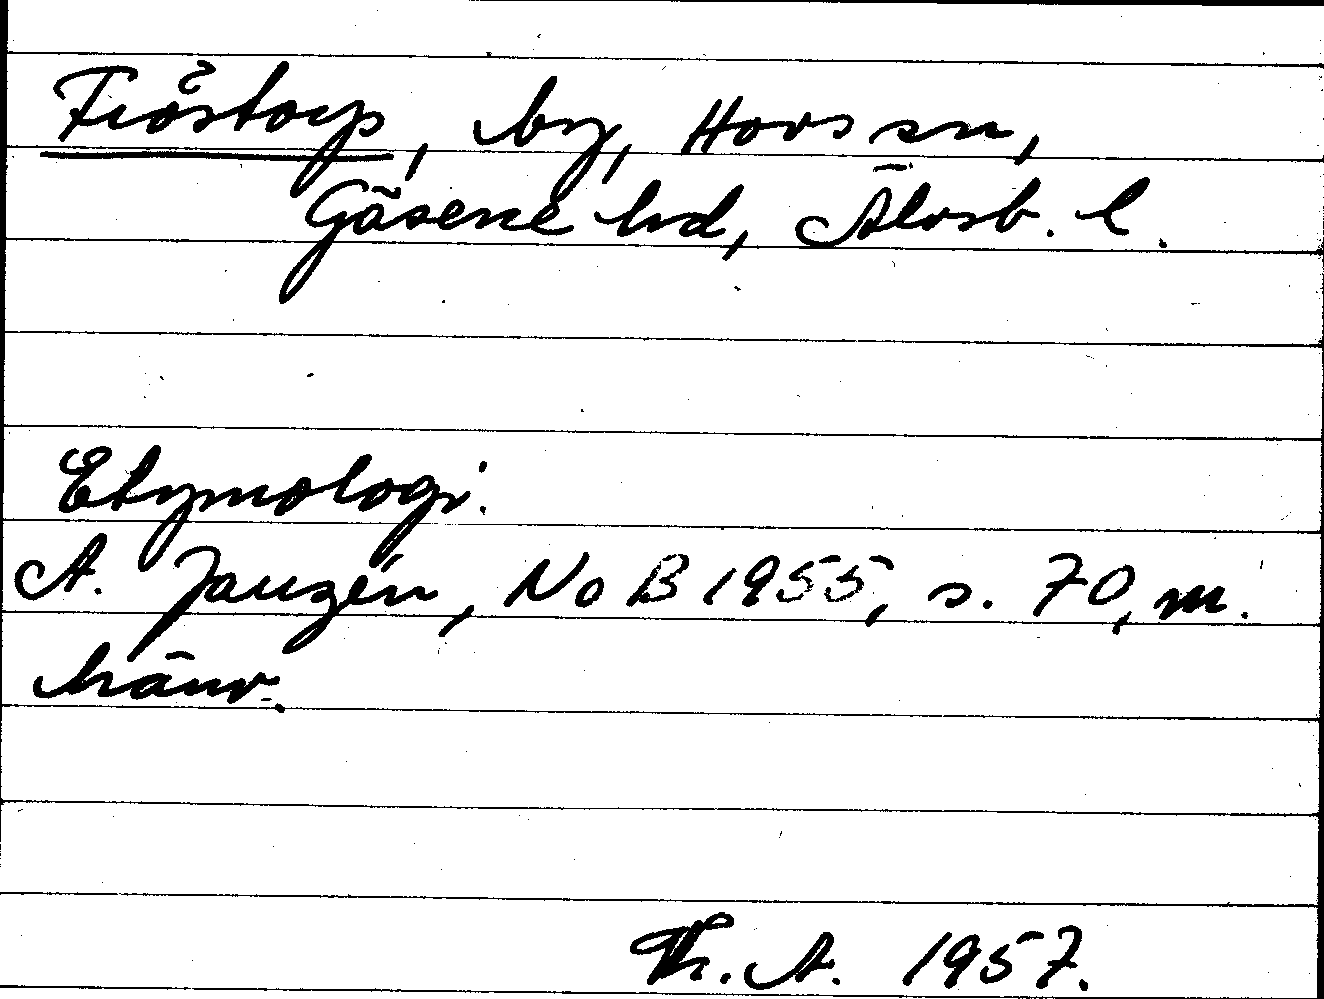 Fröstorp, by, Hovs sn,
Gäsene hd, Älvsb. l.
Etymologi:
A. Janzén, NoB 1955, s. 70, m.
hänv.
Th. A. 1957.